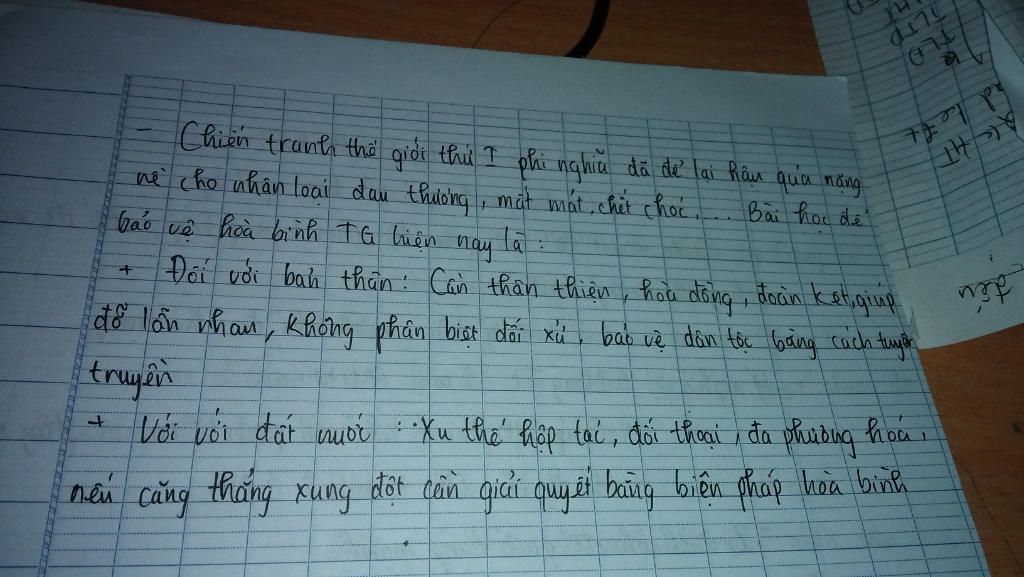 - Chiến tranh thế giới thứ I phi nghĩa đã để lại hậu quả nặng
nề cho nhân loại đau thương, mất mát, chết chóc,... Bài học để
bảo vệ hoà bình TG hiện nay là :
+ Đối với bản thân : Cần thân thiện, hoà đồng, đoàn kết, giúp
đỡ lẫn nhau, không phân biệt đối xử, bảo vệ dân tộc bằng cách tuyên
truyền
+ Với với đất nước : Xu thế hợp tác, đối thoại, đa phương hoá,
nếu căng thẳng xung đột cần giải quyết bằng biện pháp hoà bình
TLD
TLTP
HT
đều